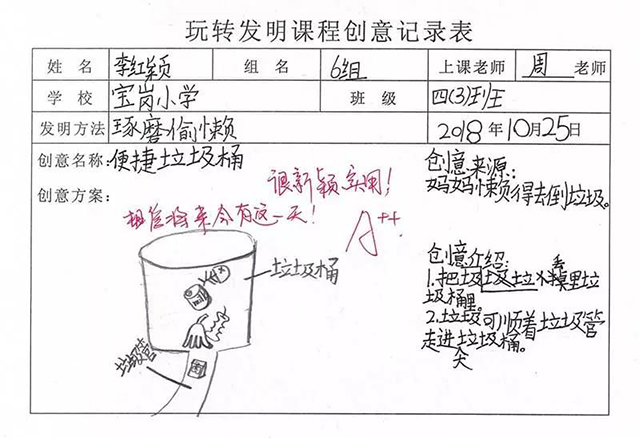 玩转发明课程创意记录表
姓 名 李红颖 组 名 6组 上课老师 周 老师
学 校 宝岗小学 班 级 四(3)班
发明方法 琢磨偷懒 2018 年 10月25日
创意名称: 便捷垃圾桶
创意方案:
很新颖实用!
相信将来会有这一天!
A++
垃圾桶
垃圾管
创意来源:
妈妈懒得去倒垃圾。
创意介绍:
1.把圾垃圾垃
里垃
圾桶哩。
2.垃圾可顺着垃圾管
走进垃圾桶。
尖